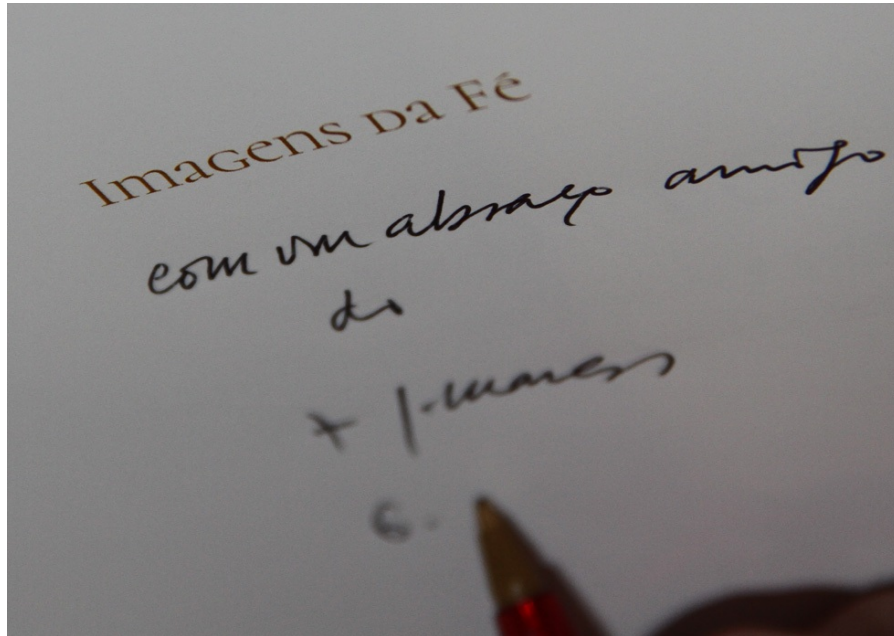 Imagens da Fé
com um abraço amigo
do
+
6.